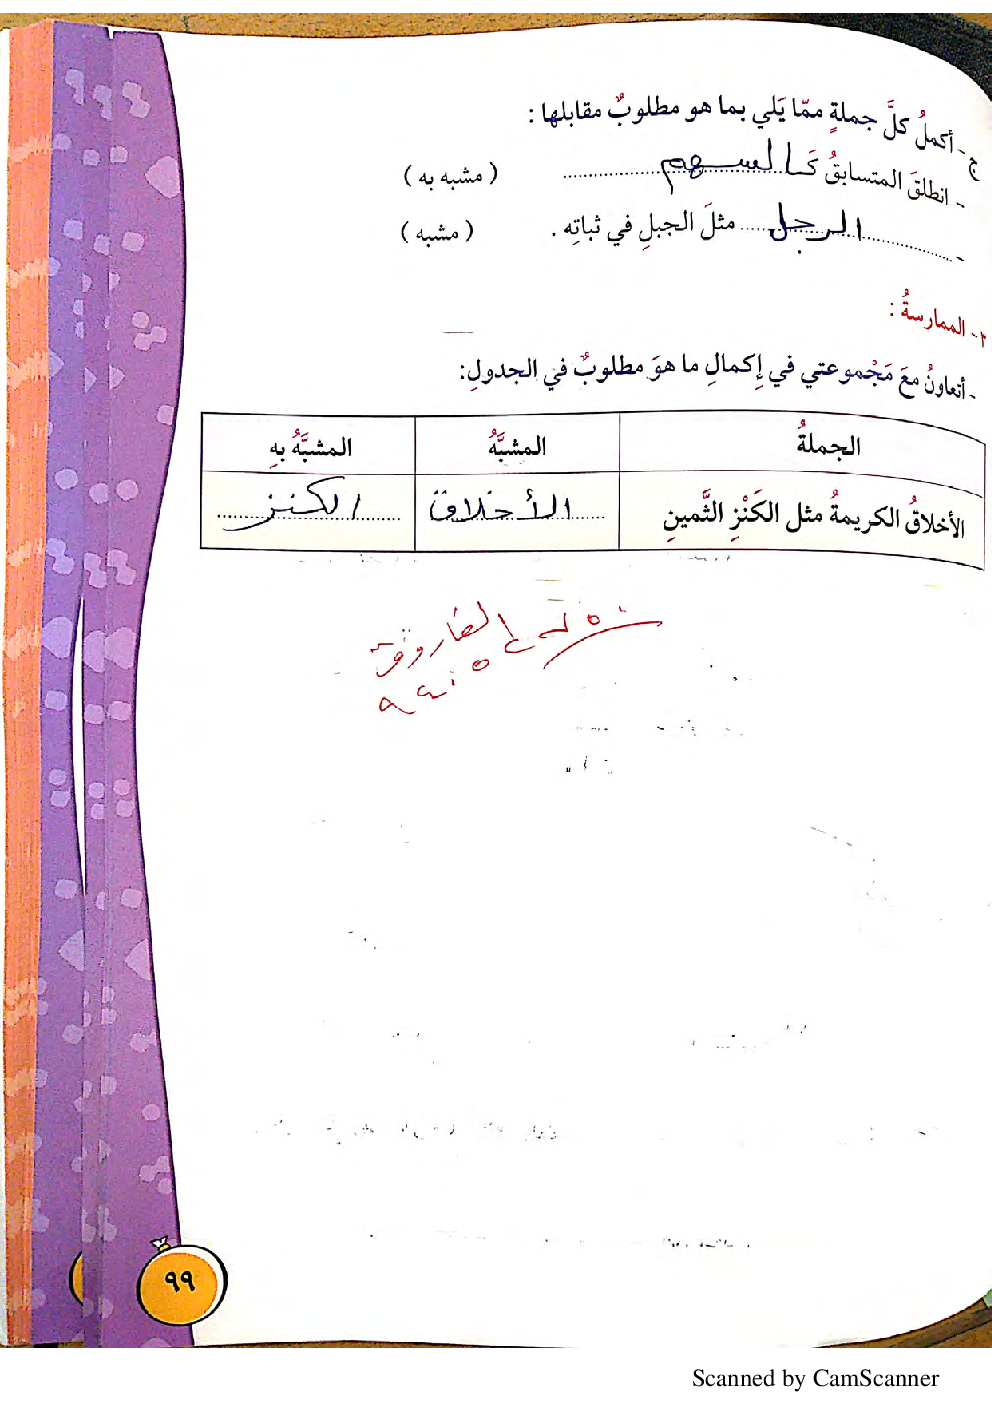 ج - أكملُ كلَّ جملةٍ ممّا يَلي بما هو مطلوبٌ مقابلها :
- انطلقَ المتسابقُ كَالسهم ( مشبه به )
- الرجل مثلَ الجبلِ في ثباتِه . ( مشبه )
٢- الممارسةُ :
- أتعاونُ معَ مَجْموعتي في إِكمالِ ما هوَ مطلوبٌ في الجدولِ:
الجملةُ المشبَّهُ المشبَّهُ بهِ
الأخلاقُ الكريمةُ مثل الكَنْزِ الثَّمينِ الأخلاق الكنز
الفاروق
٩٩
Scanned by CamScanner